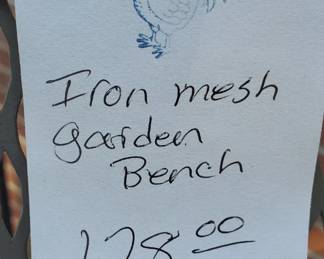 Iron mesh
garden
Bench
128.00